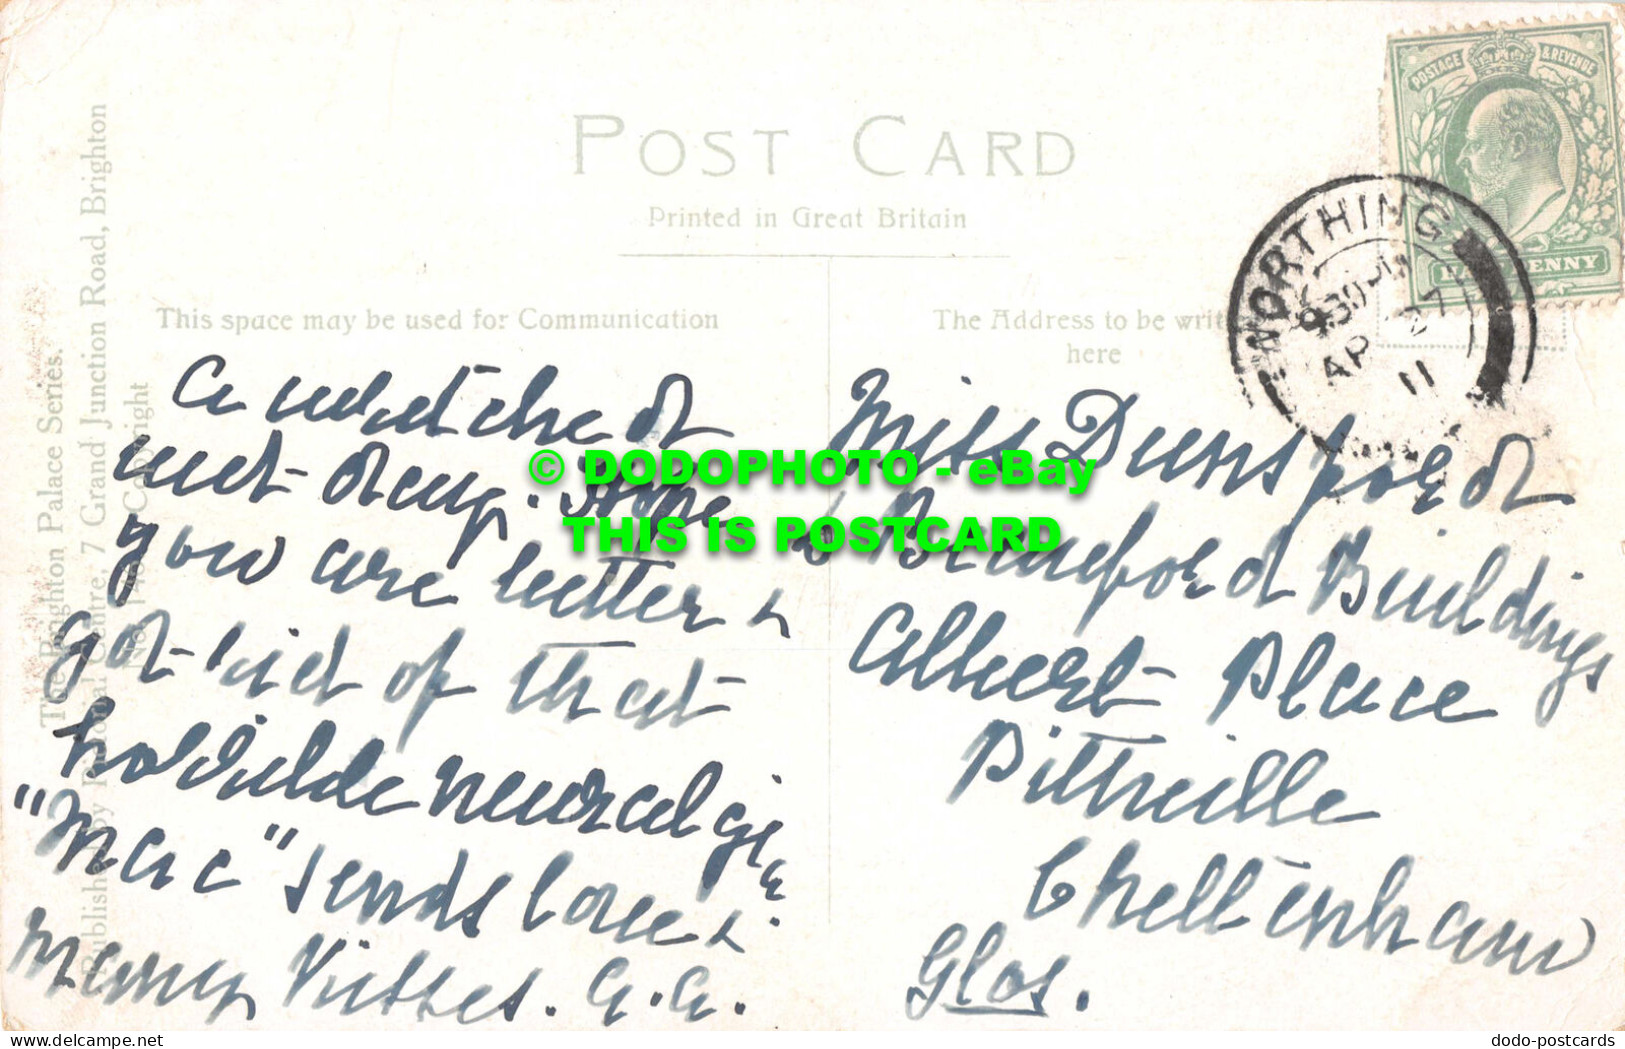 POST CARD
Printed in Great Britain
This space may be used for Communication
The Address to be writ
here
The Brighton Palace Series.
Published by National Centre, 7 Grand Junction Road, Brighton
Copyright
POSTAGE & REVENUE
HALFPENNY
WORTHING
9 30 PM
AP 27
11
A wretched
wet day. Hope
you are better &
got rid of that
horrible neuralgia.
"Mac" sends love &
many kisses. G.G.
Miss Dunsford
Albert Place
Pittville
Cheltenham
Glos.
Buildings
© DODOPHOTO - eBay
THIS IS POSTCARD
dodo-postcards